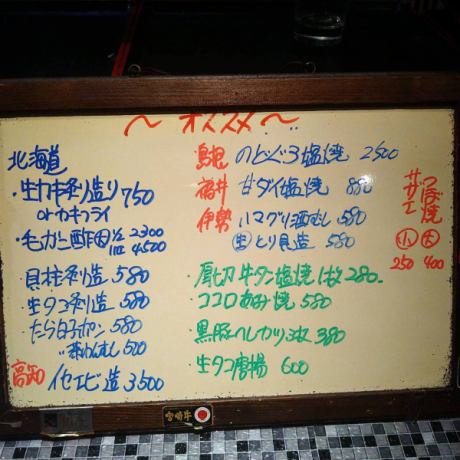 ～ オススメ ～
北海道
・生カキ造り 750
orカキフライ
・毛ガニ酢 大 1/2 2300
1ハイ 4500
・貝柱造 580
・生タコ造 580
・たら白子ポン 580
〃 茶わんむし 500
高知 イセエビ造 3500
・島根 のどぐろ塩焼 2500
・福井 甘ダイ塩焼 880
伊勢 ハマグリ酒むし 580
生 とり貝造 580
・厚切牛タン塩焼 280
・ココロあみ焼 580
・黒豚ヒレカツ 380
・生タコ唐揚 600
サザエ つぼ焼
小 250
大 400
宮崎牛